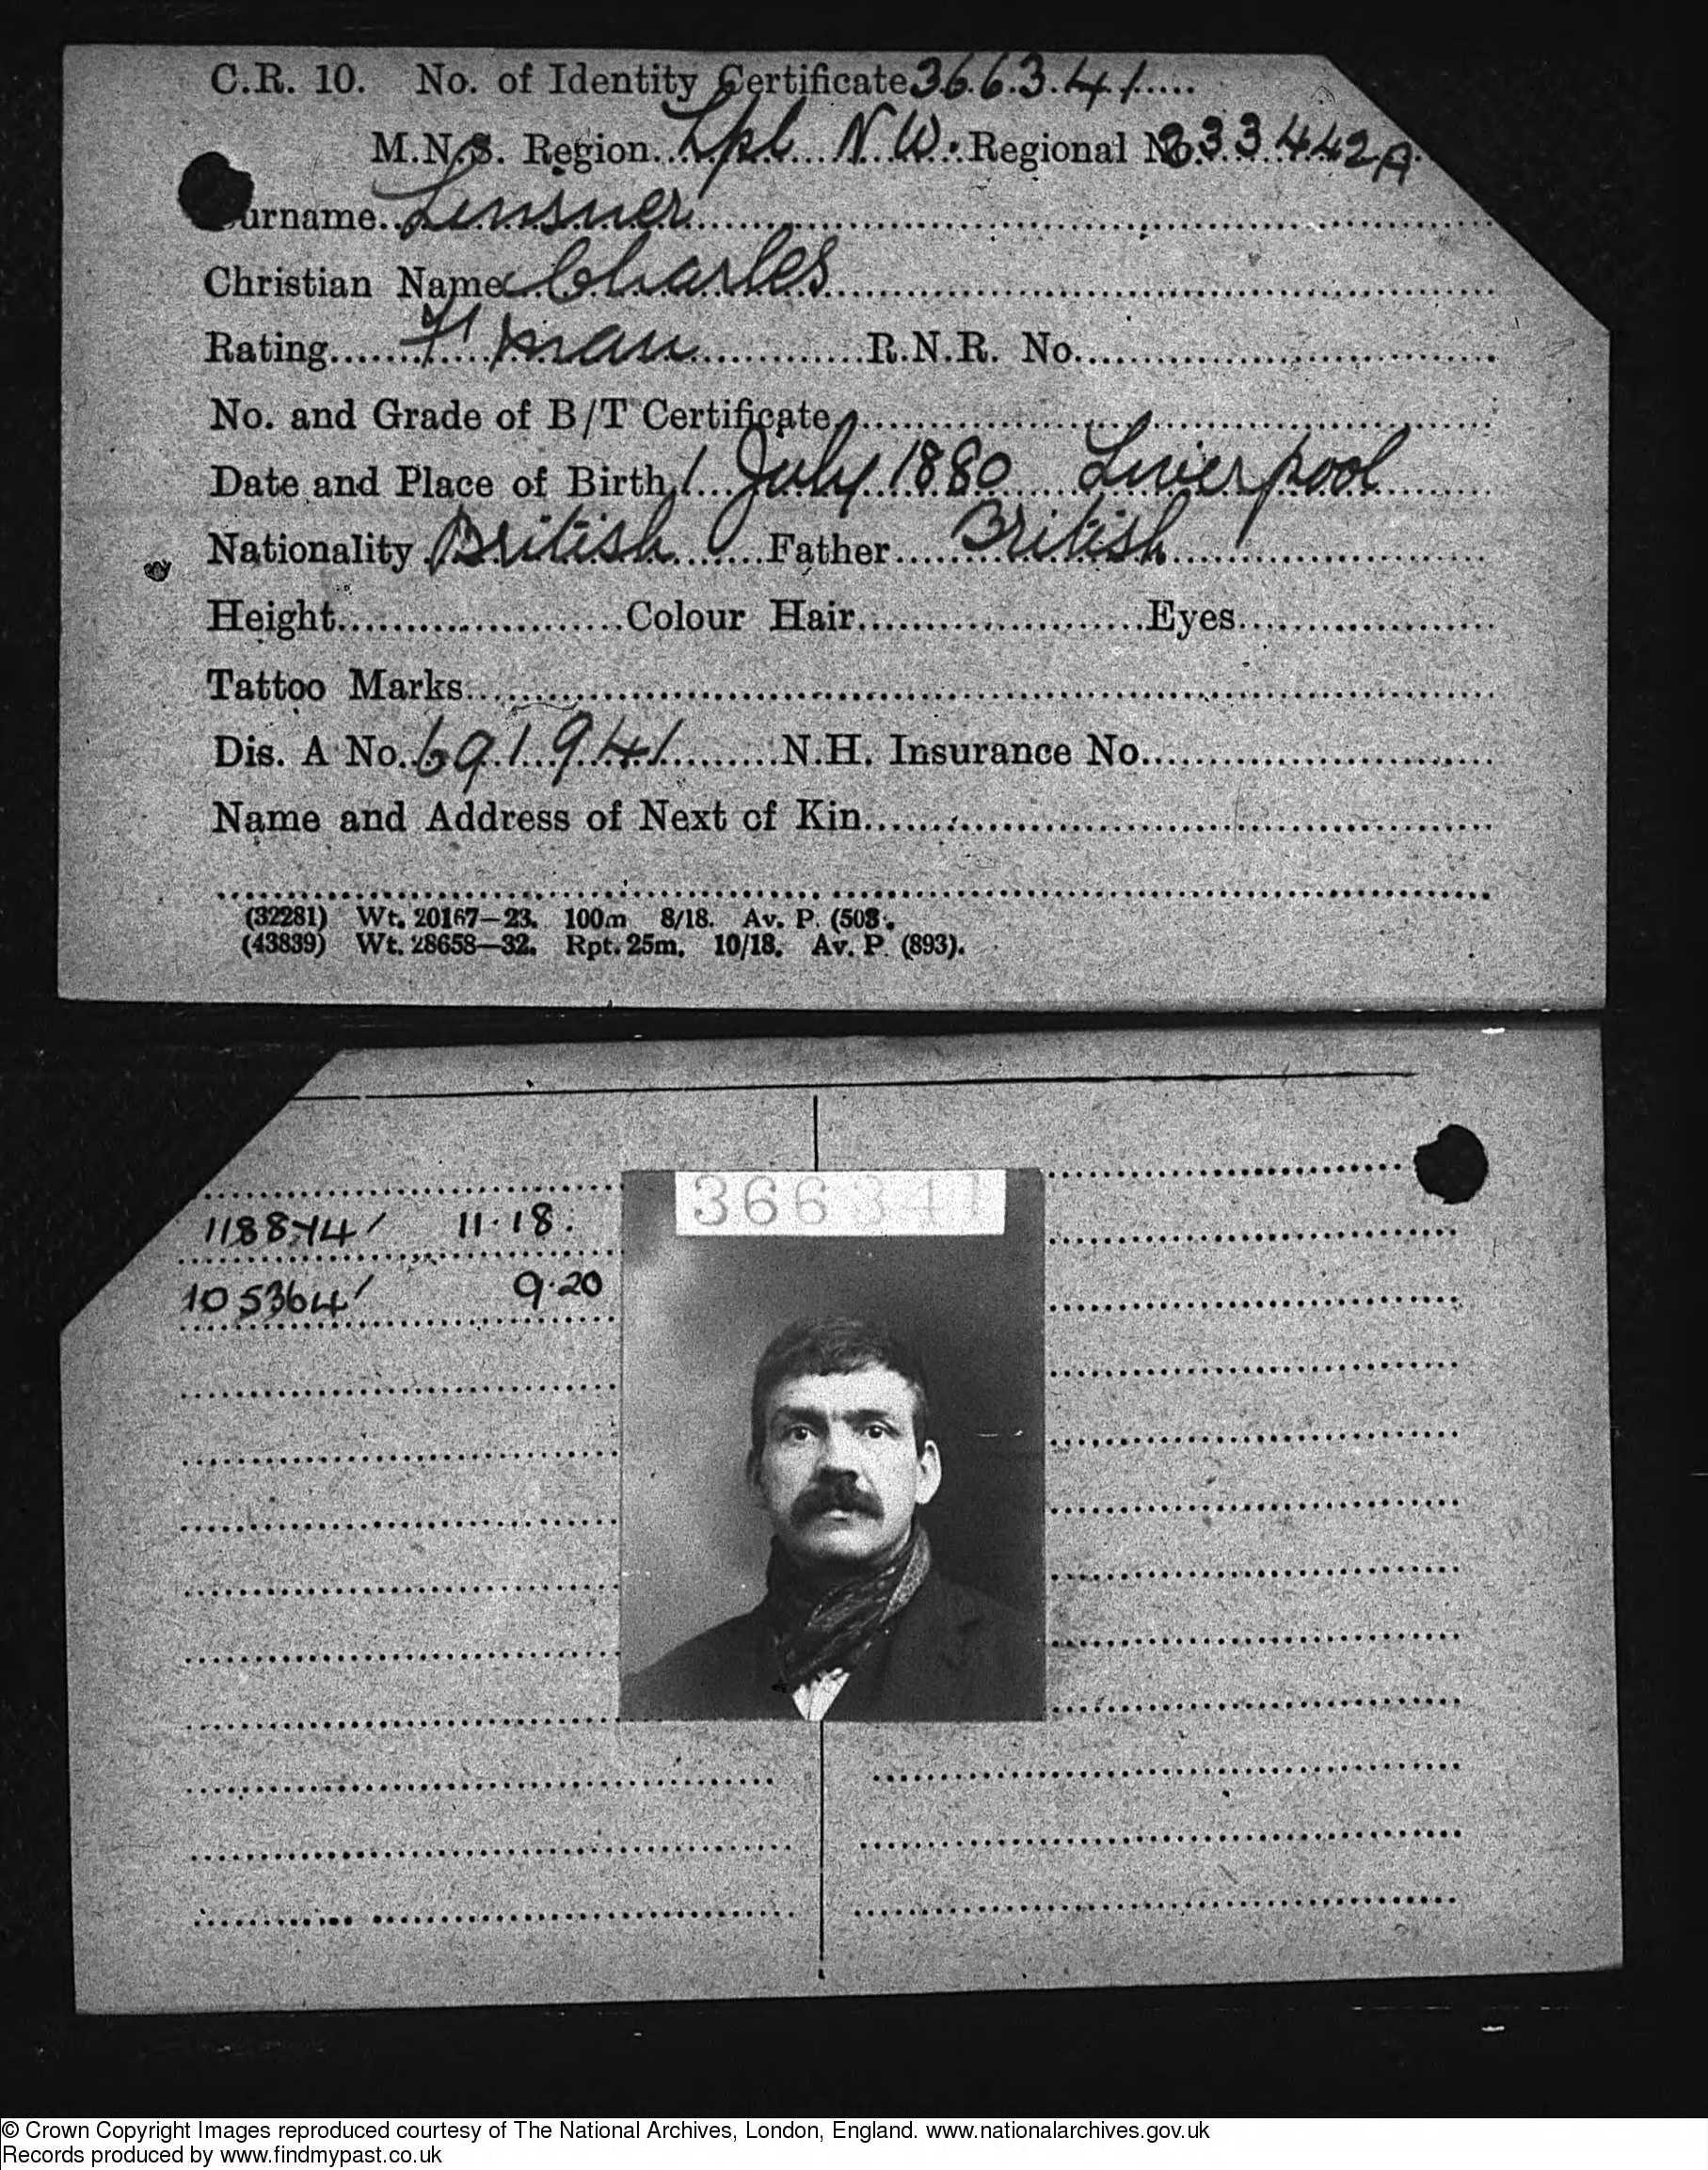 C.R. 10. No. of Identity Certificate 366341
M.N.S. Region Lpl N.W. Regional No. 233442A
urname Linsner
Christian Name Charles
Rating F'man R.N.R. No.
No. and Grade of B/T Certificate
Date and Place of Birth 1 July 1880 Liverpool
Nationality British Father British
Height Colour Hair Eyes
Tattoo Marks
Dis. A No. 691941 N.H. Insurance No.
Name and Address of Next of Kin
(32281) Wt. 20167—23. 100m 8/18. Av. P. (503.
(43839) Wt. 28658—32. Rpt. 25m. 10/18. Av. P. (893).
366341
11·18.
105364/ 9·20
© Crown Copyright Images reproduced courtesy of The National Archives, London, England. www.nationalarchives.gov.uk
Records produced by www.findmypast.co.uk